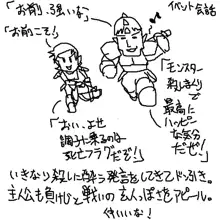 イベント会話
「お前、強いな」
「お前こそ!」
「モンスター
殺しまくり
で
最高に
ハッピー
な気分
だぜ!」
「おい、よせ
調子に乗るのは
死亡フラグだぞ!」
いきなり殺しに酔う発言をしてきてどっ引き。
主人公も負けじと戦いの玄人っぽさをアピール。
仲いいな!